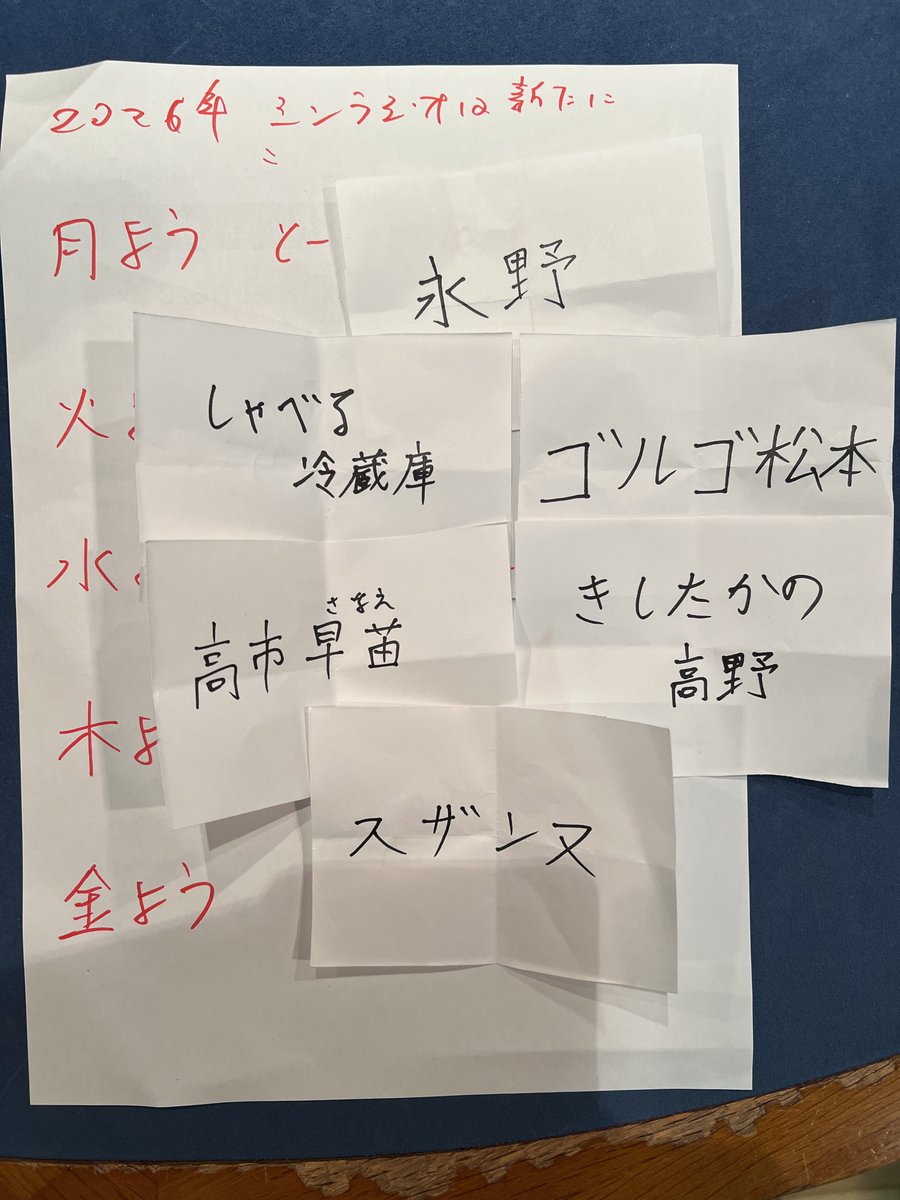 2026年 ミンラジオは新たに
月よう とー
永野
火よ
しゃべる
冷蔵庫
ゴルゴ松本
水よ
さなえ
高市早苗
きしたかの
高野
木よ
スザンヌ
金よう